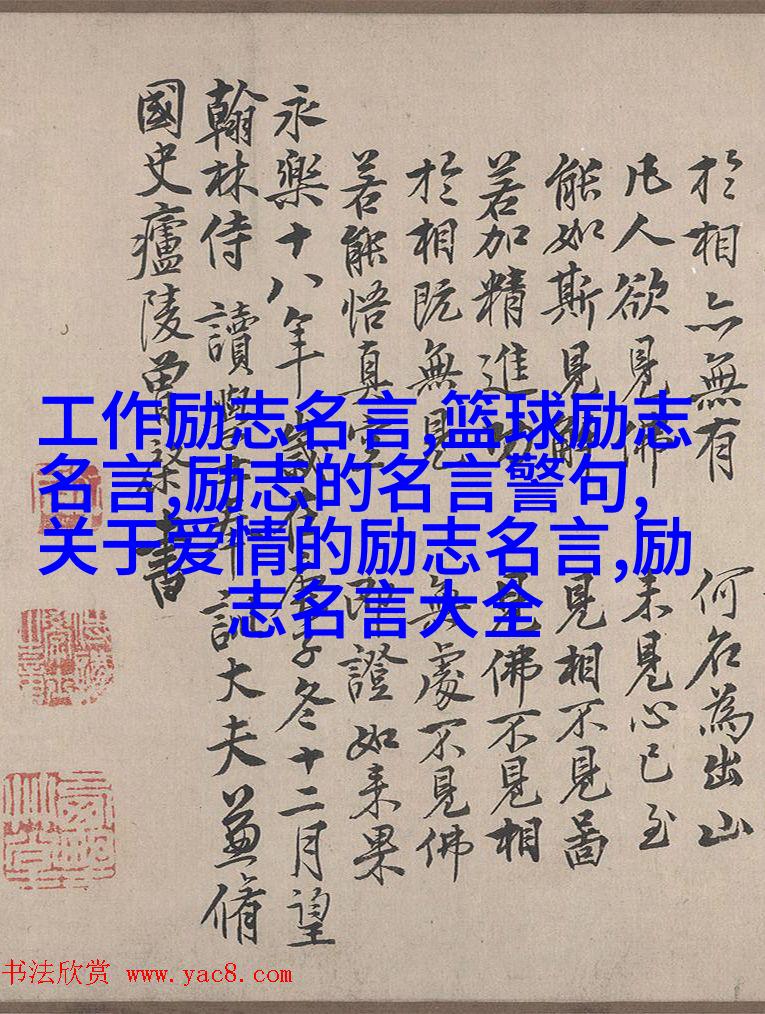 工作励志名言,篮球励志
名言,励志的名言警句,
关于爱情的励志名言,励
志名言大全
於相亦無有 何名為出山
凡人欲見佛 未見心已至
能如斯見解 見相不見啚
若加精進 見佛不見相
於相既無見 無處不見佛
若能悟真空 證如来果
永樂十八年歲在子冬十二月望
翰林侍讀學士奉訓大夫兼脩
國史廬陵曾棨書
书法欣赏 www.yac8.com